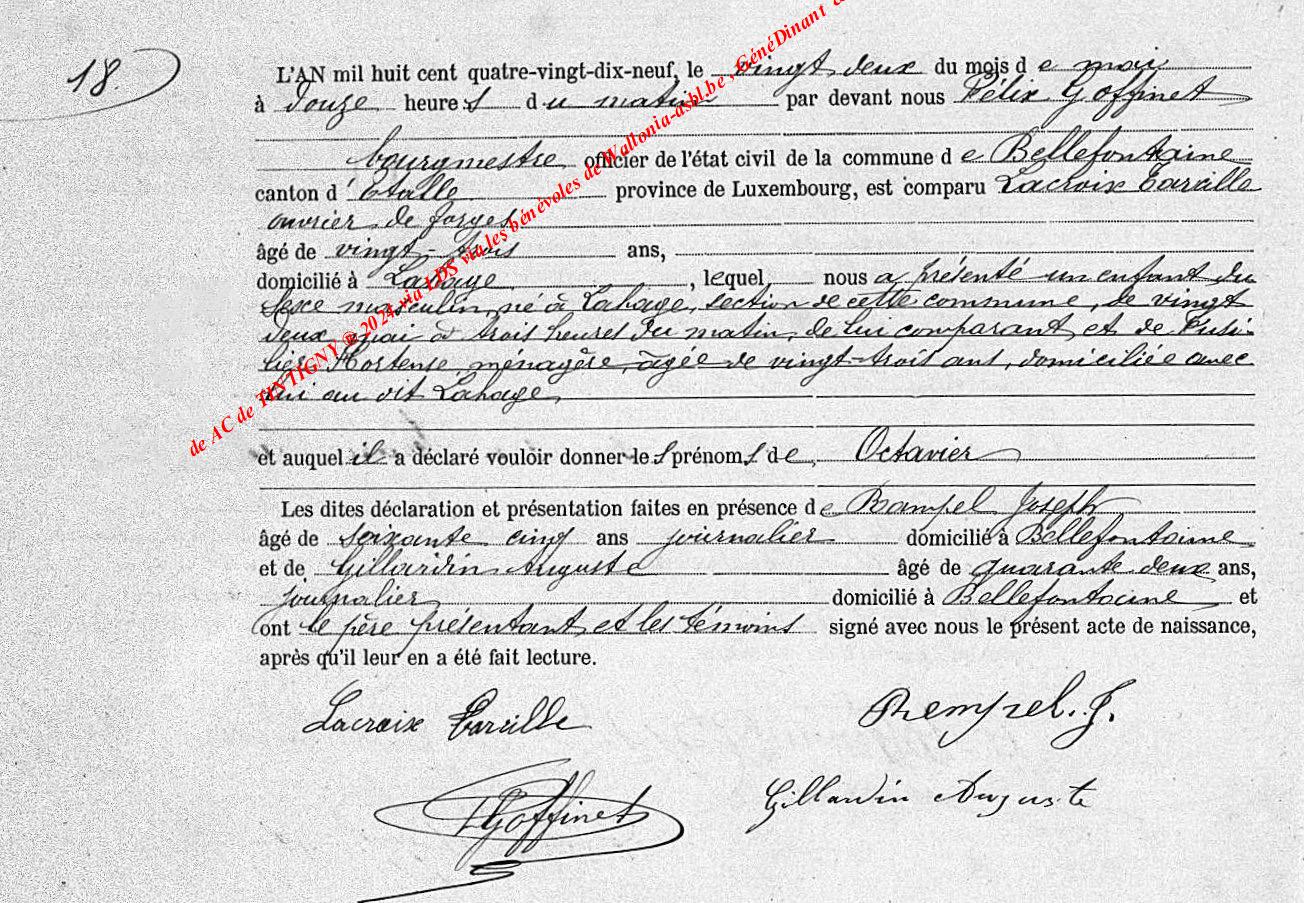 18.
L'AN mil huit cent quatre-vingt-dix-neuf, le vingt deux du mois de mai
à douze heures du matin par devant nous Félix Goffinet
bourgmestre officier de l'état civil de la commune de Bellefontaine
canton d'Etalle province de Luxembourg, est comparu Lacroix
ouvrier de forges
âgé de vingt-trois ans,
domicilié à Lahage, lequel nous a présenté un enfant du
sexe masculin, né à Lahage, section de cette commune, le vingt
deux mai à trois heures du matin, de lui comparant et de
Hortense, ménagère, âgée de vingt-trois ans, domiciliée avec
lui au dit Lahage,
et auquel il a déclaré vouloir donner les prénoms de, Octavier
Les dites déclaration et présentation faites en présence de Joseph
âgé de soixante cinq ans journalier domicilié à Bellefontaine
et de Gillardin Auguste âgé de quarante deux ans,
journalier domicilié à Bellefontaine et
ont le père présentant et les témoins signé avec nous le présent acte de naissance,
après qu'il leur en a été fait lecture.
Lacroix
Rempel. J.
Goffinet
Gillardin Auguste
de AC de TINTIGNY ® 2024 via LDS via les bénévoles de Wallonia-asbl.be, GénéDinant